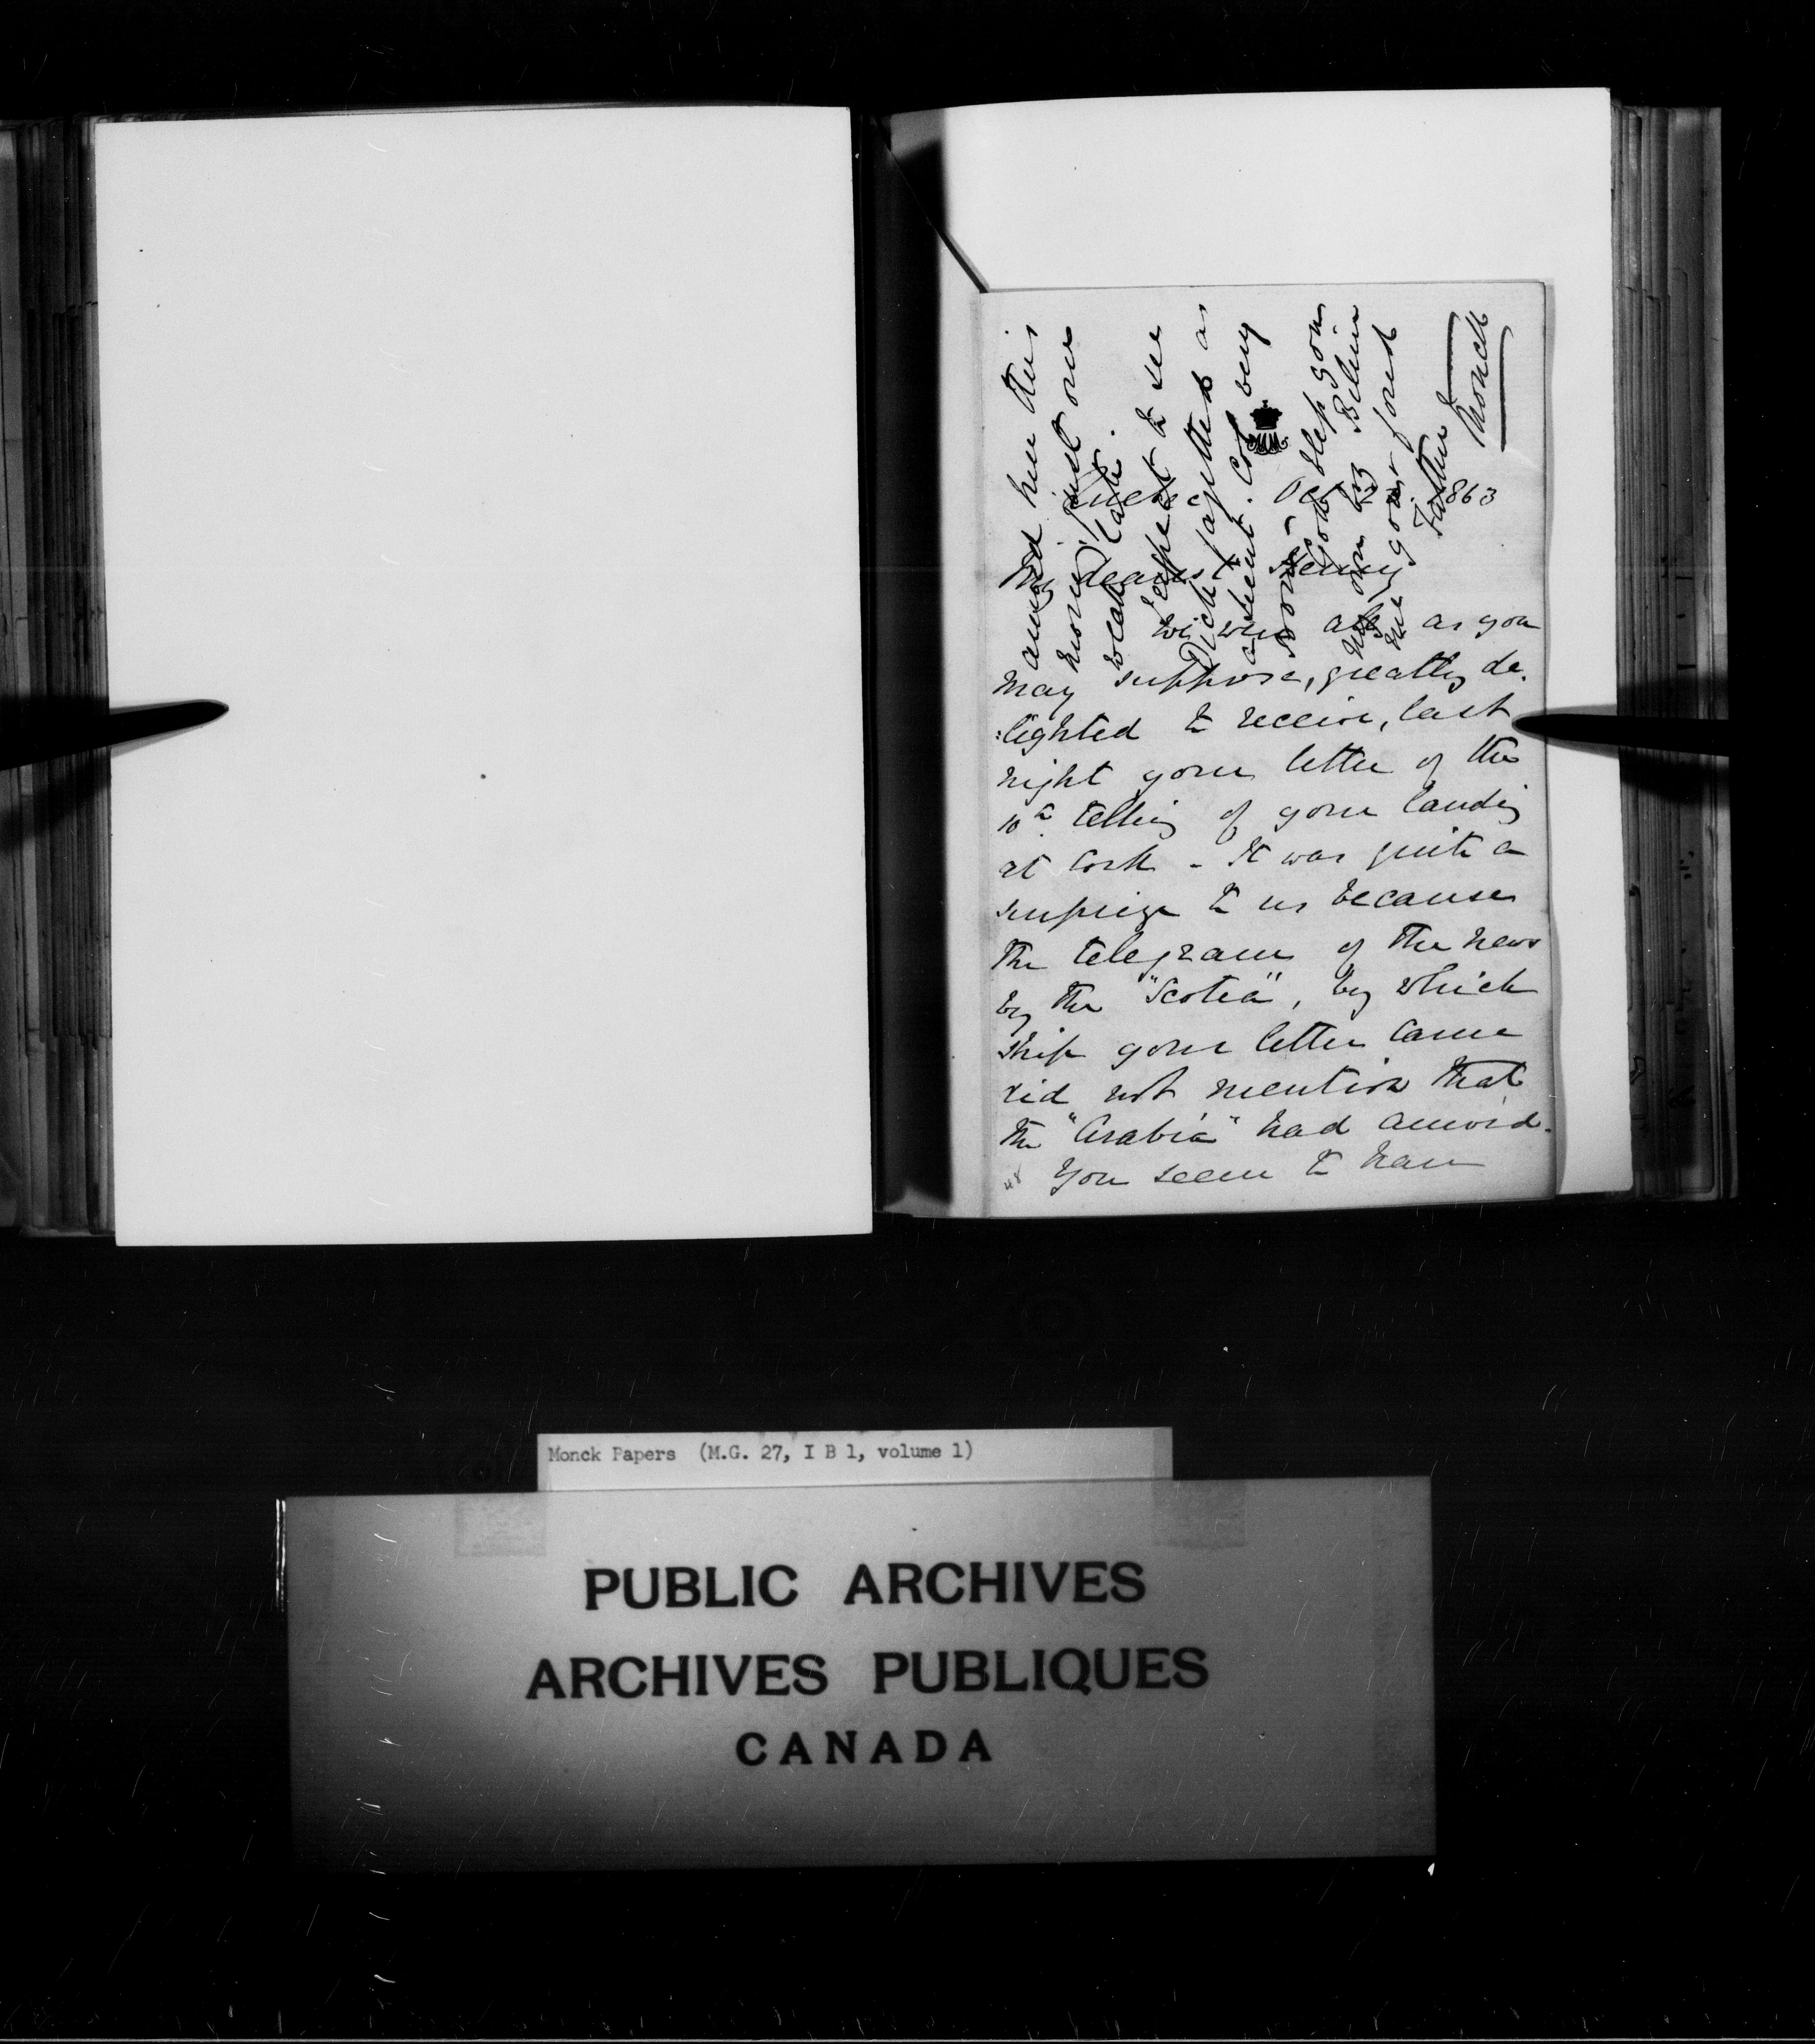 Quebec Oct 1863
My dearest Henry
We were all, as you
may suppose, greatly de-
:lighted to receive, last
night your letter of the
10th telling of your landing
at Cork - It was quite a
surprize to us because
the telegram of the news
by the "Scotia", by which
ship your letter came
did not mention that
the "Arabia" had arrived.
You seem to have
48
arrived here this
morning just one
week late.
I expect to see
Dick together as
absent. Col
God bless you
my own Believe
me your fond
Father
Monck
Monck Papers (M.G. 27, I B 1, volume 1)
PUBLIC ARCHIVES
ARCHIVES PUBLIQUES
CANADA